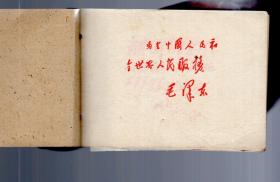 为全中国人民和
全世界人民服务
毛泽东